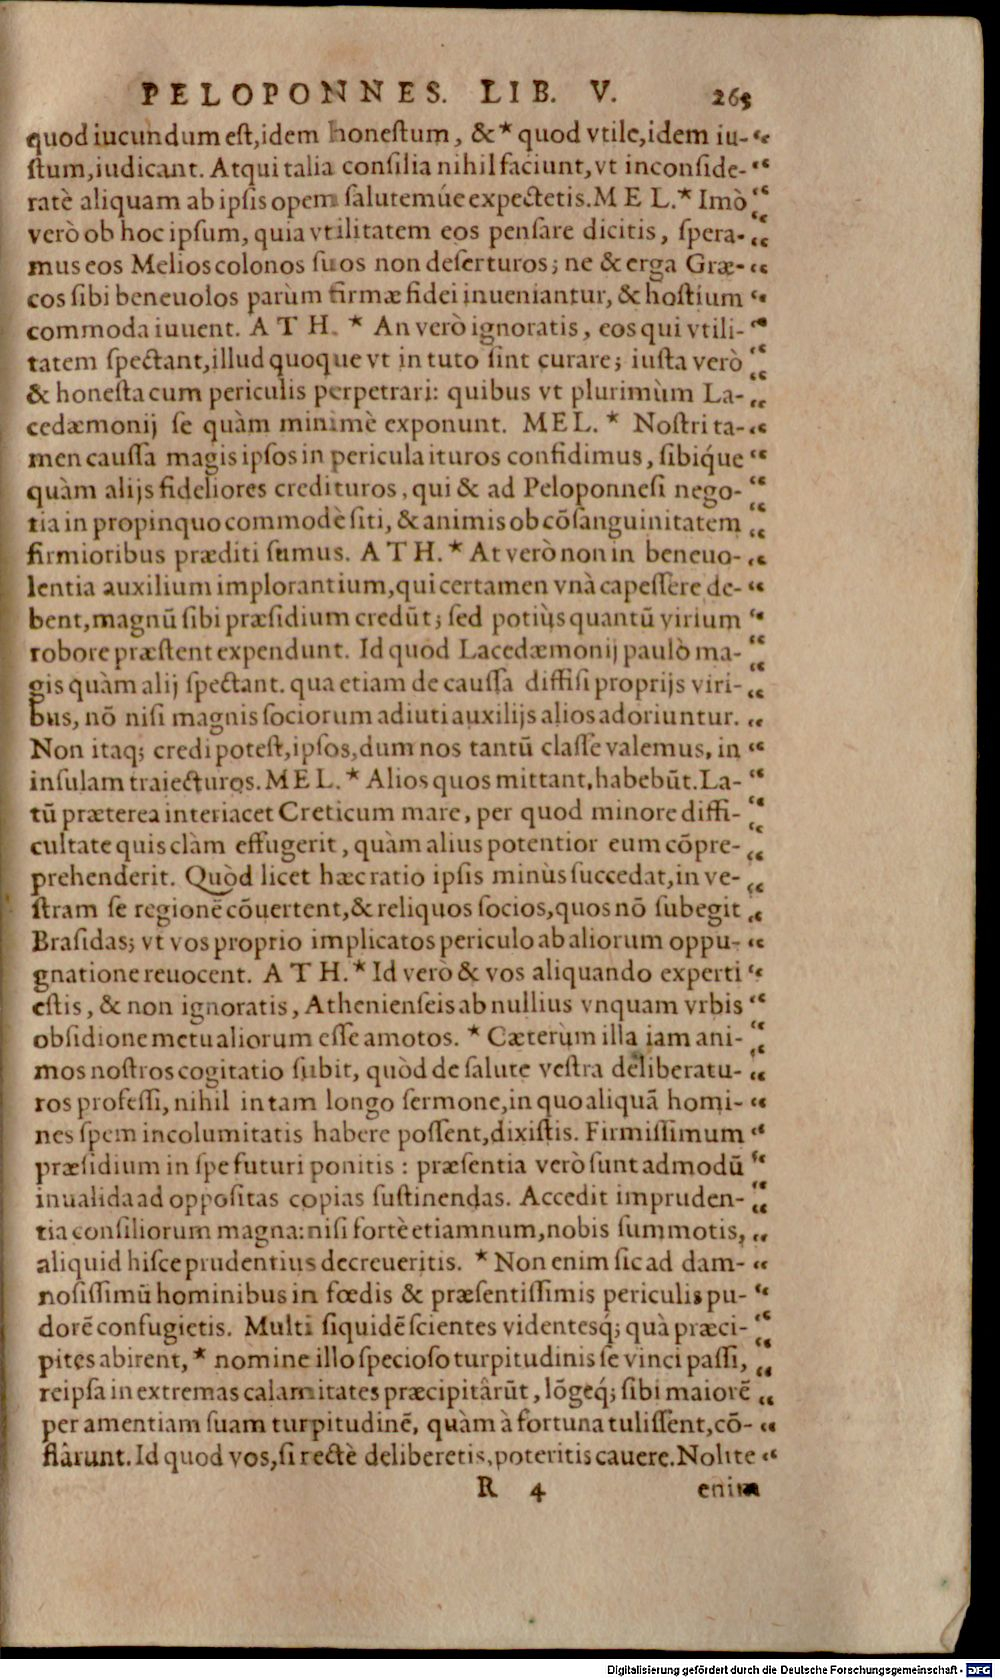 PELOPONNES. LIB. V. 265
quod iucundum est, idem honestum, &* quod vtile, idem iu- “
stum, iudicant. Atqui talia consilia nihil faciunt, vt inconside- “
ratè aliquam ab ipsis opem salutemúe expectetis. MEL.* Imò “
verò ob hoc ipsum, quia vtilitatem eos pensare dicitis, spera- “
mus eos Melios colonos suos non deserturos; ne & erga Græ- “
cos sibi beneuolos parùm firmæ fidei inueniantur, & hostium “
commoda iuuent. ATH. * An verò ignoratis, eos qui vtili- “
tatem spectant, illud quoque vt in tuto sint curare; iusta verò “
& honesta cum periculis perpetrari: quibus vt plurimùm La- “
cedæmonij se quàm minimè exponunt. MEL. * Nostri ta- “
men caussa magis ipsos in pericula ituros confidimus, sibiq́ue “
quàm alijs fideliores credituros, qui & ad Peloponnesi nego- “
tia in propinquo commodè siti, & animis ob cōsanguinitatem “
firmioribus præditi sumus. ATH. * At verò non in beneuo- “
lentia auxilium implorantium, qui certamen vnà capessere de- “
bent, magnū sibi præsidium credūt; sed potiùs quantū virium “
robore præstent expendunt. Id quod Lacedæmonij paulò ma- “
gis quàm alij spectant. qua etiam de caussa diffisi proprijs viri- “
bus, nō nisi magnis sociorum adiuti auxilijs alios adoriuntur. “
Non itaq; credi potest, ipsos, dum nos tantū classe valemus, in “
insulam traiecturos. MEL. * Alios quos mittant, habebūt. La- “
tū præterea interiacet Creticum mare, per quod minore diffi- “
cultate quis clàm effugerit, quàm alius potentior eum cōpre- “
prehenderit. Quòd licet hæc ratio ipsis minùs succedat, in ve- “
stram se regionē cōuertent, & reliquos socios, quos nō subegit “
Brasidas; vt vos proprio implicatos periculo ab aliorum oppu- “
gnatione reuocent. ATH. * Id verò & vos aliquando experti “
estis, & non ignoratis, Athenienseis ab nullius vnquam vrbis “
obsidione metu aliorum esse amotos. * Cæterùm illa iam ani- “
mos nostros cogitatio subit, quòd de salute vestra deliberatu- “
ros professi, nihil in tam longo sermone, in quo aliquā homi- “
nes spem incolumitatis habere possent, dixistis. Firmissimum “
præsidium in spe futuri ponitis : præsentia verò sunt admodū “
inualida ad oppositas copias sustinendas. Accedit impruden- “
tia consiliorum magna: nisi fortè etiamnum, nobis summotis, “
aliquid hisce prudentius decreueritis. * Non enim sic ad dam- “
nosissimū hominibus in fœdis & præsentissimis periculis pu- “
dorē confugietis. Multi siquidē scientes videntesq́; quà præci- “
pites abirent, * nomine illo specioso turpitudinis se vinci passi, “
reipsa in extremas calamitates præcipitârūt, lōgeq́; sibi maiorē “
per amentiam suam turpitudinē, quàm à fortuna tulissent, cō- “
flârunt. Id quod vos, si rectè deliberetis, poteritis cauere. Nolite “
R 4 enim
Digitalisierung gefördert durch die Deutsche Forschungsgemeinschaft - DFG